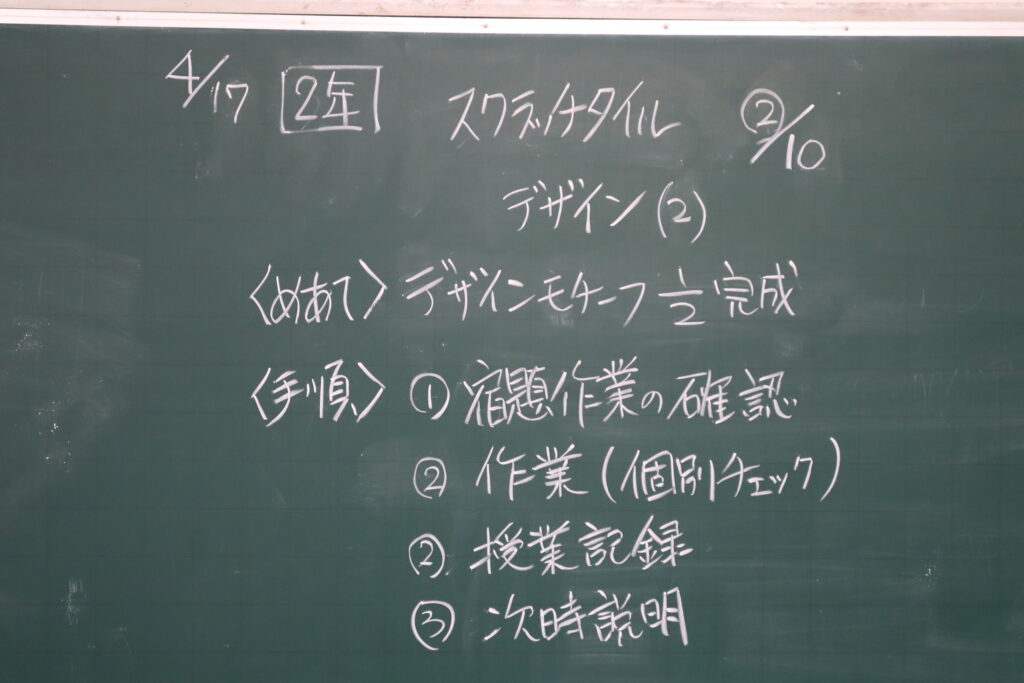 4/17 2年 スクラッチタイル ②/10
デザイン(2)
〈めあて〉デザインモチーフ 1/2 完成
〈手順〉①宿題作業の確認
② 作業(個別チェック)
② 授業記録
③ 次時説明